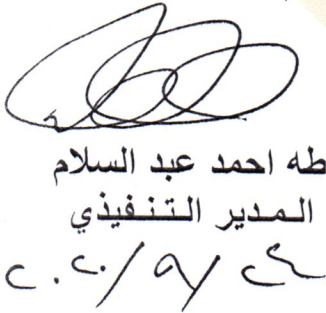 طه احمد عبد السلام
المدير التنفيذي
٢٠٢٠/٩/٢٤